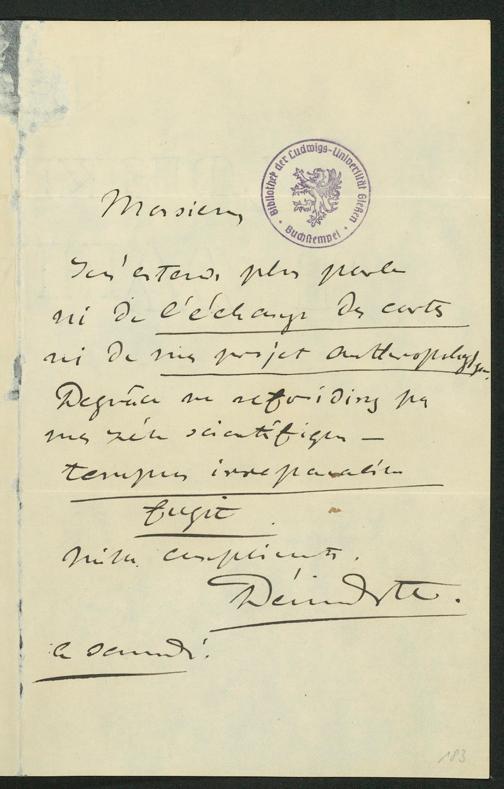 Bibliothek der Ludwigs-Universität Gießen
Buchstempel
Monsieur
plus parler
ni de l'échange des cartes
ni de mes projet anthropologiques.
De grâce ne refroidirez pas
mes zèle scientifique —
tempus irreparabile
fugit.
mille compliments.
ce samedi.
183